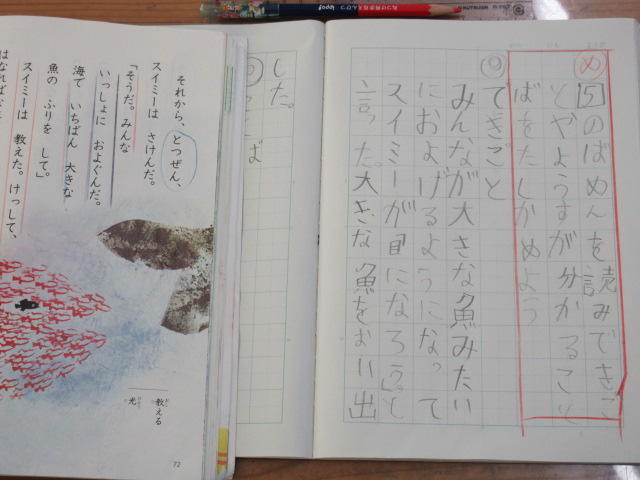 め
5のばめんを読みできご
とやようすが分かること
ばをたしかめよう
で きごと
みんなが大きな魚みたい
におよげるようになって
スイミーが「目になろう。」と
言った。大きな魚をおい出
した。
ば
それから、とつぜん、
スイミーは さけんだ。
「そうだ。みんな
いっしょに およぐんだ。
海で いちばん 大きな
魚の ふりを して。」
スイミーは 教えた。けっして、
はなればなれ
教える
光
72